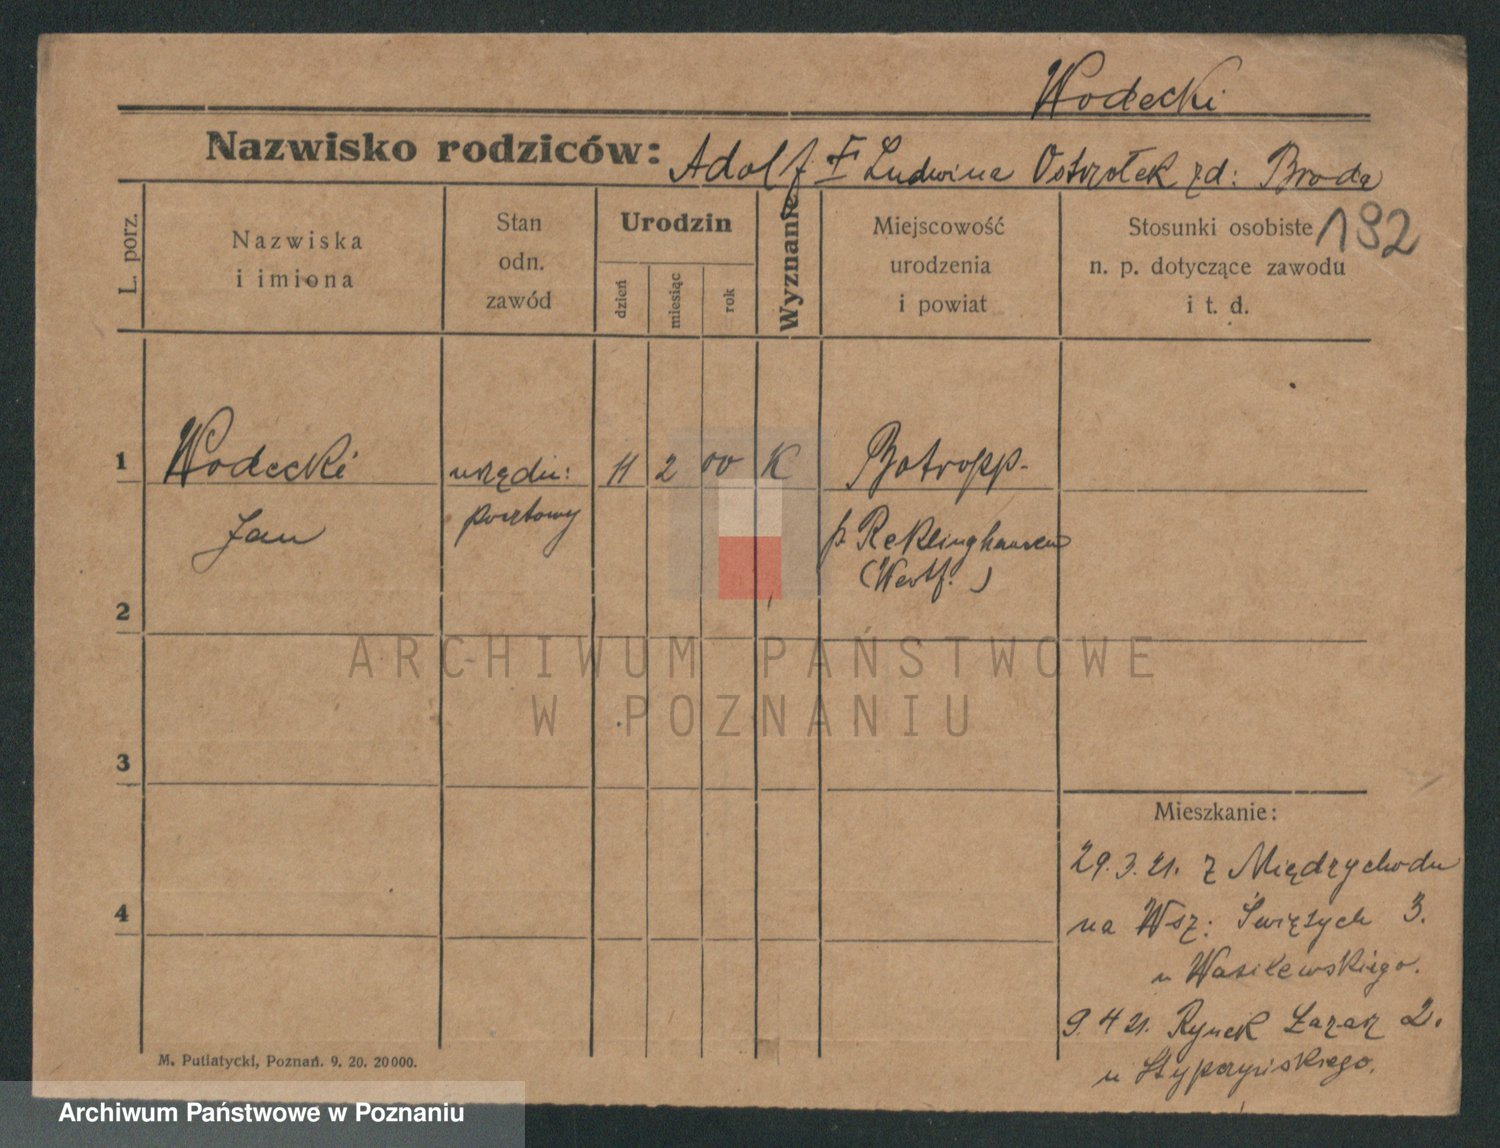 Wodecki
Nazwisko rodziców: Adolf I Ludwina Ostrołek zd: Broda
192
L. porz.
Nazwiska
i imiona
Stan
odn.
zawód
Urodzin
dzień
miesiąc
rok
Wyznanie
Miejscowość
urodzenia
i powiat
Stosunki osobiste
n. p. dotyczące zawodu
i t. d.
1 Wodecki urzędn: 11 2 00 K Botropp.
Jan pocztowy p. Reklinghausen
(Westf.)
2
ARCHIWUM PAŃSTWOWE
W POZNANIU
3
Mieszkanie:
29.3.21. z Międzychodu
4
na Wsz: Świętych 3.
u Wasilewskiego.
9.4 21. Rynek Łazar 2.
u
M. Putiatycki, Poznań. 9. 20. 20000.
Archiwum Państwowe w Poznaniu